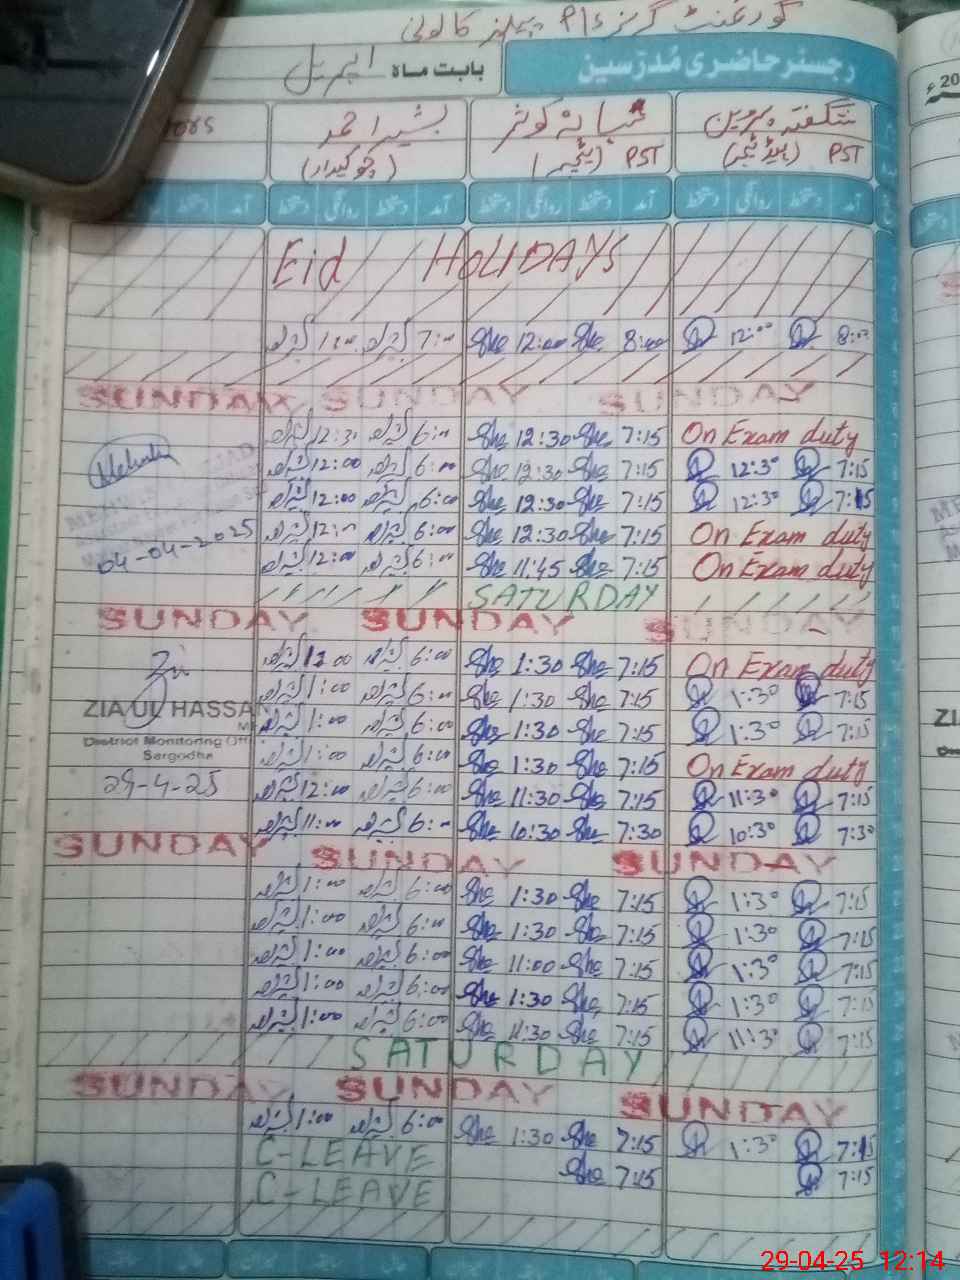 گورنمنٹ گرلز P/S پیلنز کالونی
رجسٹر حاضری مُدرّسین بابت ماہ اپریل
شگفتہ پروین شبانہ کوثر بشیر احمد
PST (ہیڈ ٹیچر) PST (ٹیچر) (چوکیدار)
آمد دستخط روانگی دستخط آمد دستخط روانگی دستخط آمد دستخط روانگی دستخط آمد دستخط
Eid HOLIDAYS
1:00 7:00 She 12:00 She 8:00 12:00 8:00
SUNDAY SUNDAY SUNDAY
12:30 6:00 She 12:30 She 7:15 On Exam duty
12:00 6:00 She 12:30 She 7:15 12:30 7:15
12:00 6:00 She 12:30 She 7:15 12:30 7:15
04-04-2025 12:00 6:00 She 12:30 She 7:15 On Exam duty
12:00 6:00 She 11:45 She 7:15 On Exam duty
SATURDAY
SUNDAY SUNDAY SUNDAY
12:00 6:00 She 1:30 She 7:15 On Exam duty
1:00 6:00 She 1:30 She 7:15 1:30 7:15
ZIA UL HASSAN 1:00 6:00 She 1:30 She 7:15 1:30 7:15
District Monitoring Off
Sargodha 1:00 6:00 She 1:30 She 7:15 On Exam duty
29-4-25 12:00 6:00 She 11:30 She 7:15 11:30 7:15
11:00 6:00 She 10:30 She 7:30 10:30 7:30
SUNDAY SUNDAY SUNDAY
1:00 6:00 She 1:30 She 7:15 1:30 7:15
1:00 6:00 She 1:30 She 7:15 1:30 7:15
1:00 6:00 She 11:00 She 7:15 1:30 7:15
1:00 6:00 She 1:30 She 7:15 1:30 7:15
1:00 6:00 She 11:30 She 7:15 11:30 7:15
SATURDAY
SUNDAY SUNDAY SUNDAY
1:00 6:00 She 1:30 She 7:15 1:30 7:15
C-LEAVE She 7:15 7:15
C-LEAVE
29-04-25 12:14